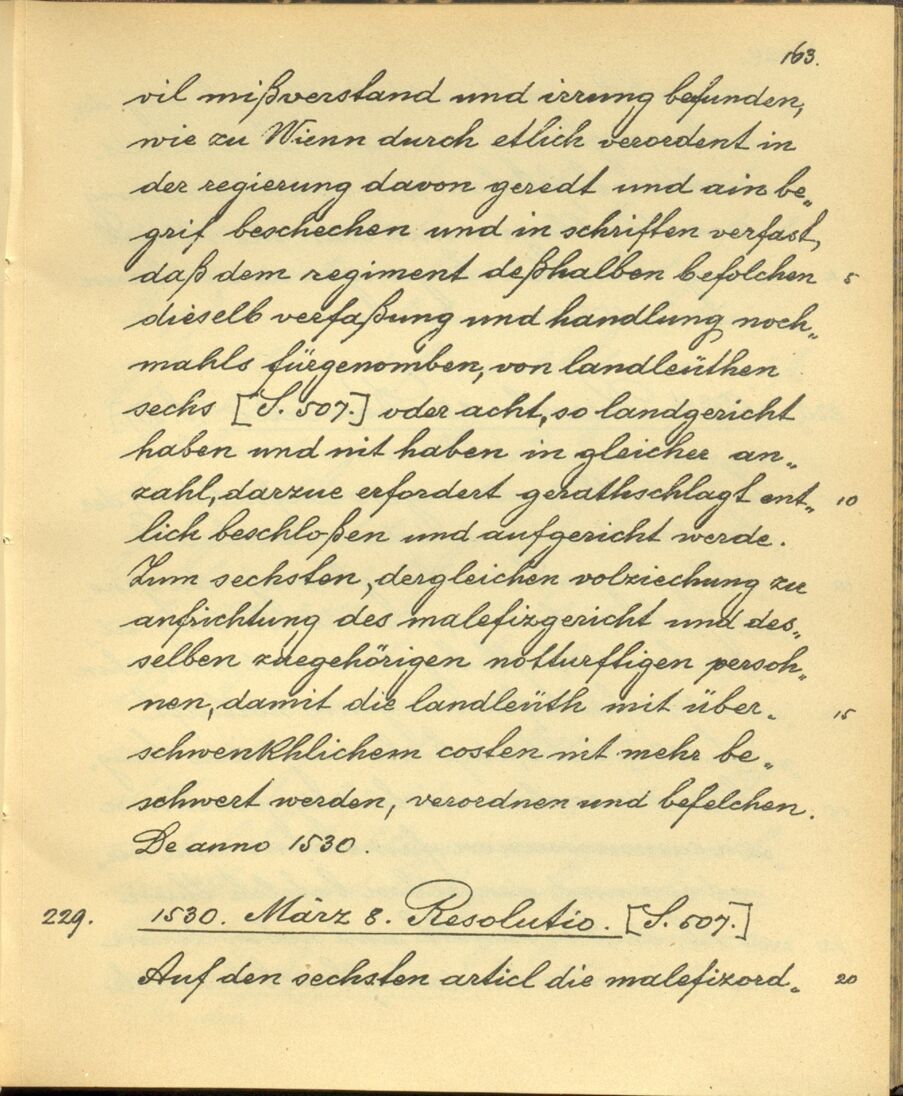 163.
vil mißverstand und irrung befunden,
wie zu Wienn durch etlich verordent in
der regierung davon geredt und ain be„
grif beschechen und in schriften verfast,
daß dem regiment deßhalben befolchen 5
dieselb verfaßung und handlung noch„
mahls fürgenomben, von landleüthen
sechs [S. 507.] oder acht, so landgericht
haben und nit haben in gleicher an„
zahl, darzue erfordert gerathschlagt ent„ 10
lich beschloßen und aufgericht werde.
Zum sechsten, dergleichen volziechung zu
anfrichtung des malefizgericht und des„
selben zuegehörigen notturftigen persoh„
nen, damit die landleüth mit über„ 15
schwenkhlichem costen nit mehr be„
schwert werden, verordnen und befelchen.
De anno 1530.
229. 1530. März 8. Resolutio. [S. 507.]
Auf den sechsten articl die malefizord„ 20